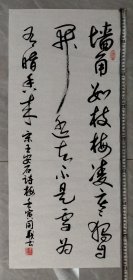 墙角数枝梅凌寒独自
开遥知不是雪为
有暗香来 宋王安石诗梅 壬寅